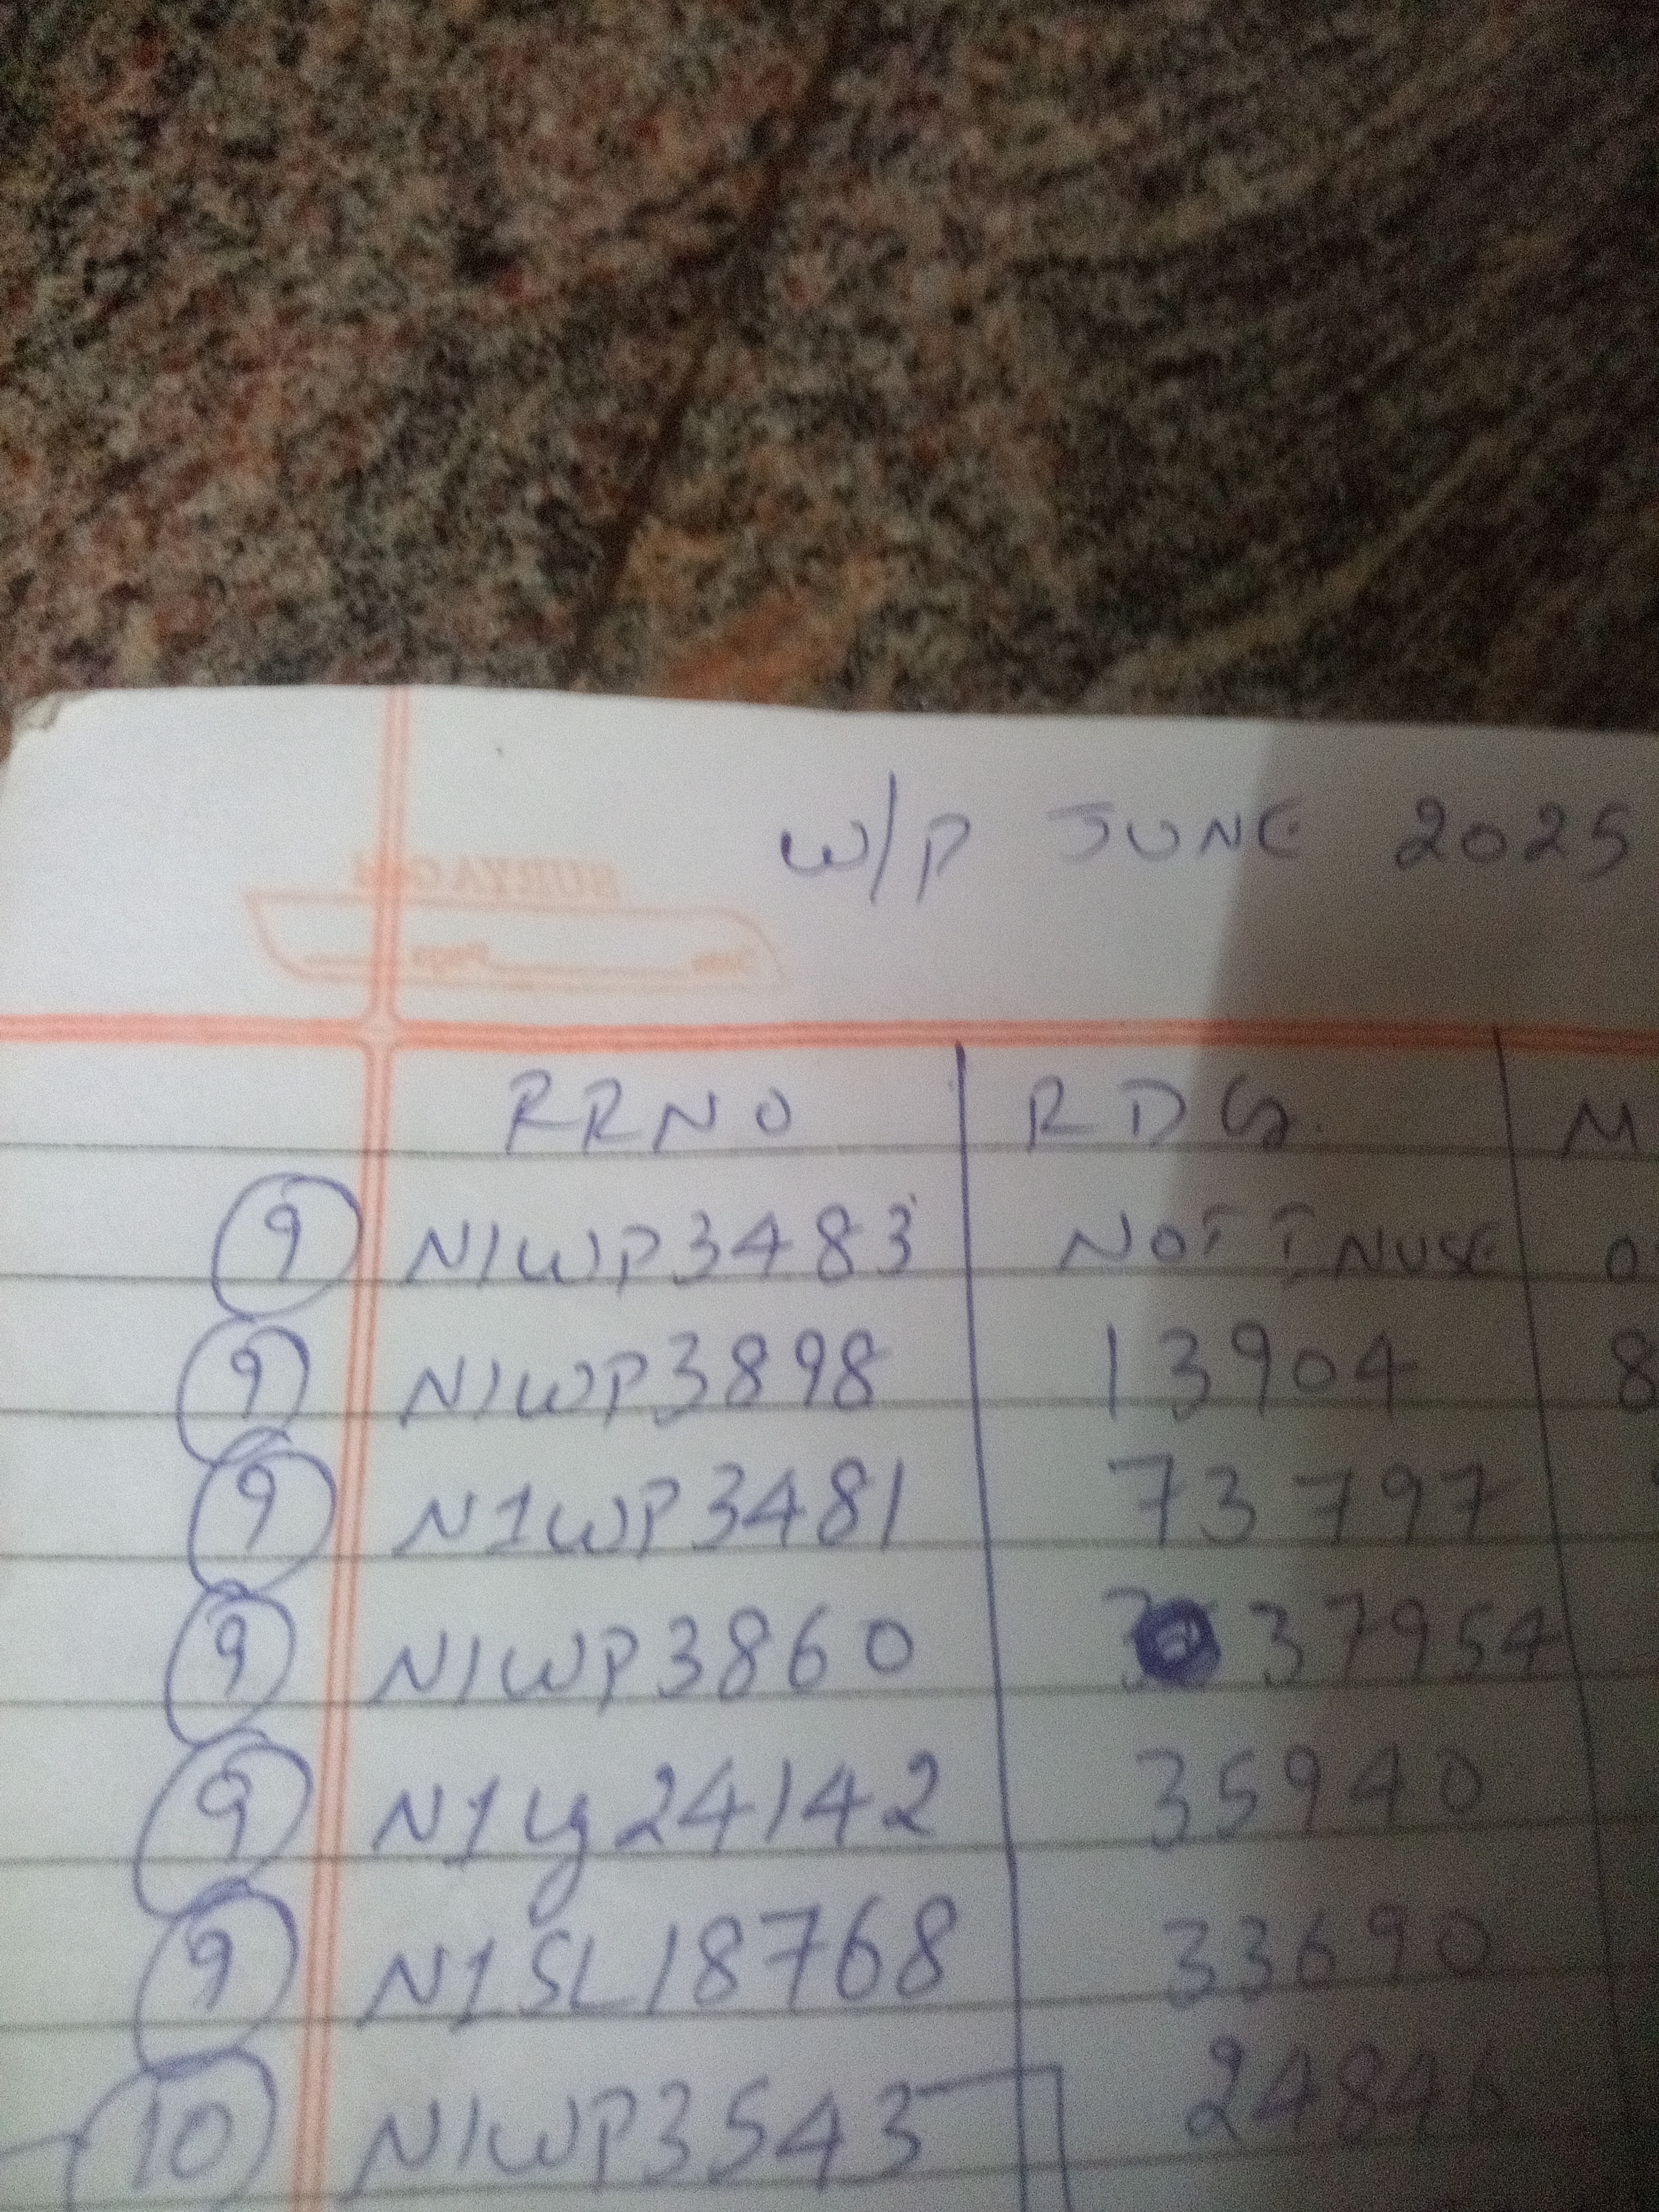 W/P JUNE 2025
RRNO RDG. M
9 N1WP3483 NOT INUSE 0
9 N1WP3898 13904 8
9 N1WP3481 73797
9 N1WP3860 37954
9 N1Lg24142 35940
9 N1SL18768 33690
10 N1WP3543 24846